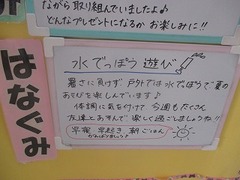 ながら取り組んでいましたよ♪
どんなプレゼントになるか お楽しみに!!
はなぐみ
水でっぽう 遊び
暑さに負けず 戸外では水でっぽうで 夏の
あそびを楽しんでいます♪
体調に気を付けて 今週もたくさん
友達とあそんで 楽しく過ごしましょうね!!
早寝 早起き 朝ごはん
がんばりましょう♪